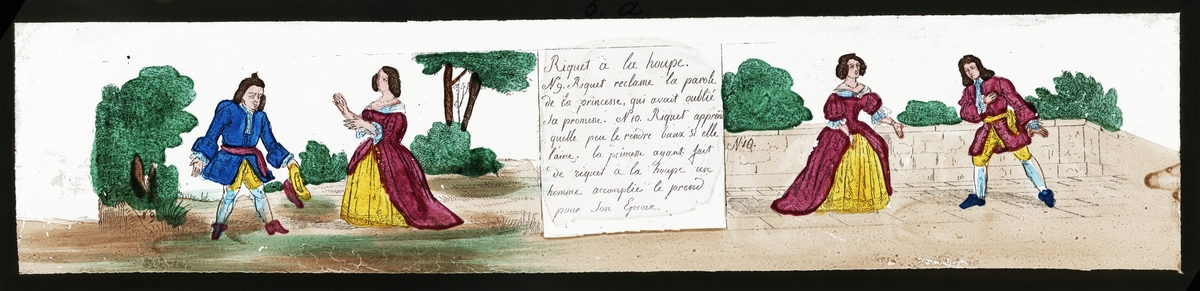 5. a.
Riquet à la houpe.
N9. Riquet réclame la parole
de la princesse, qui avait oublié
sa promesse. N10. Riquet apprend
qu'elle peu le rendre baux si elle
l'aime. la princesse ayant fait
de riquet à la houpe un
homme accomplie le prend
pour son Epoux.
N10.